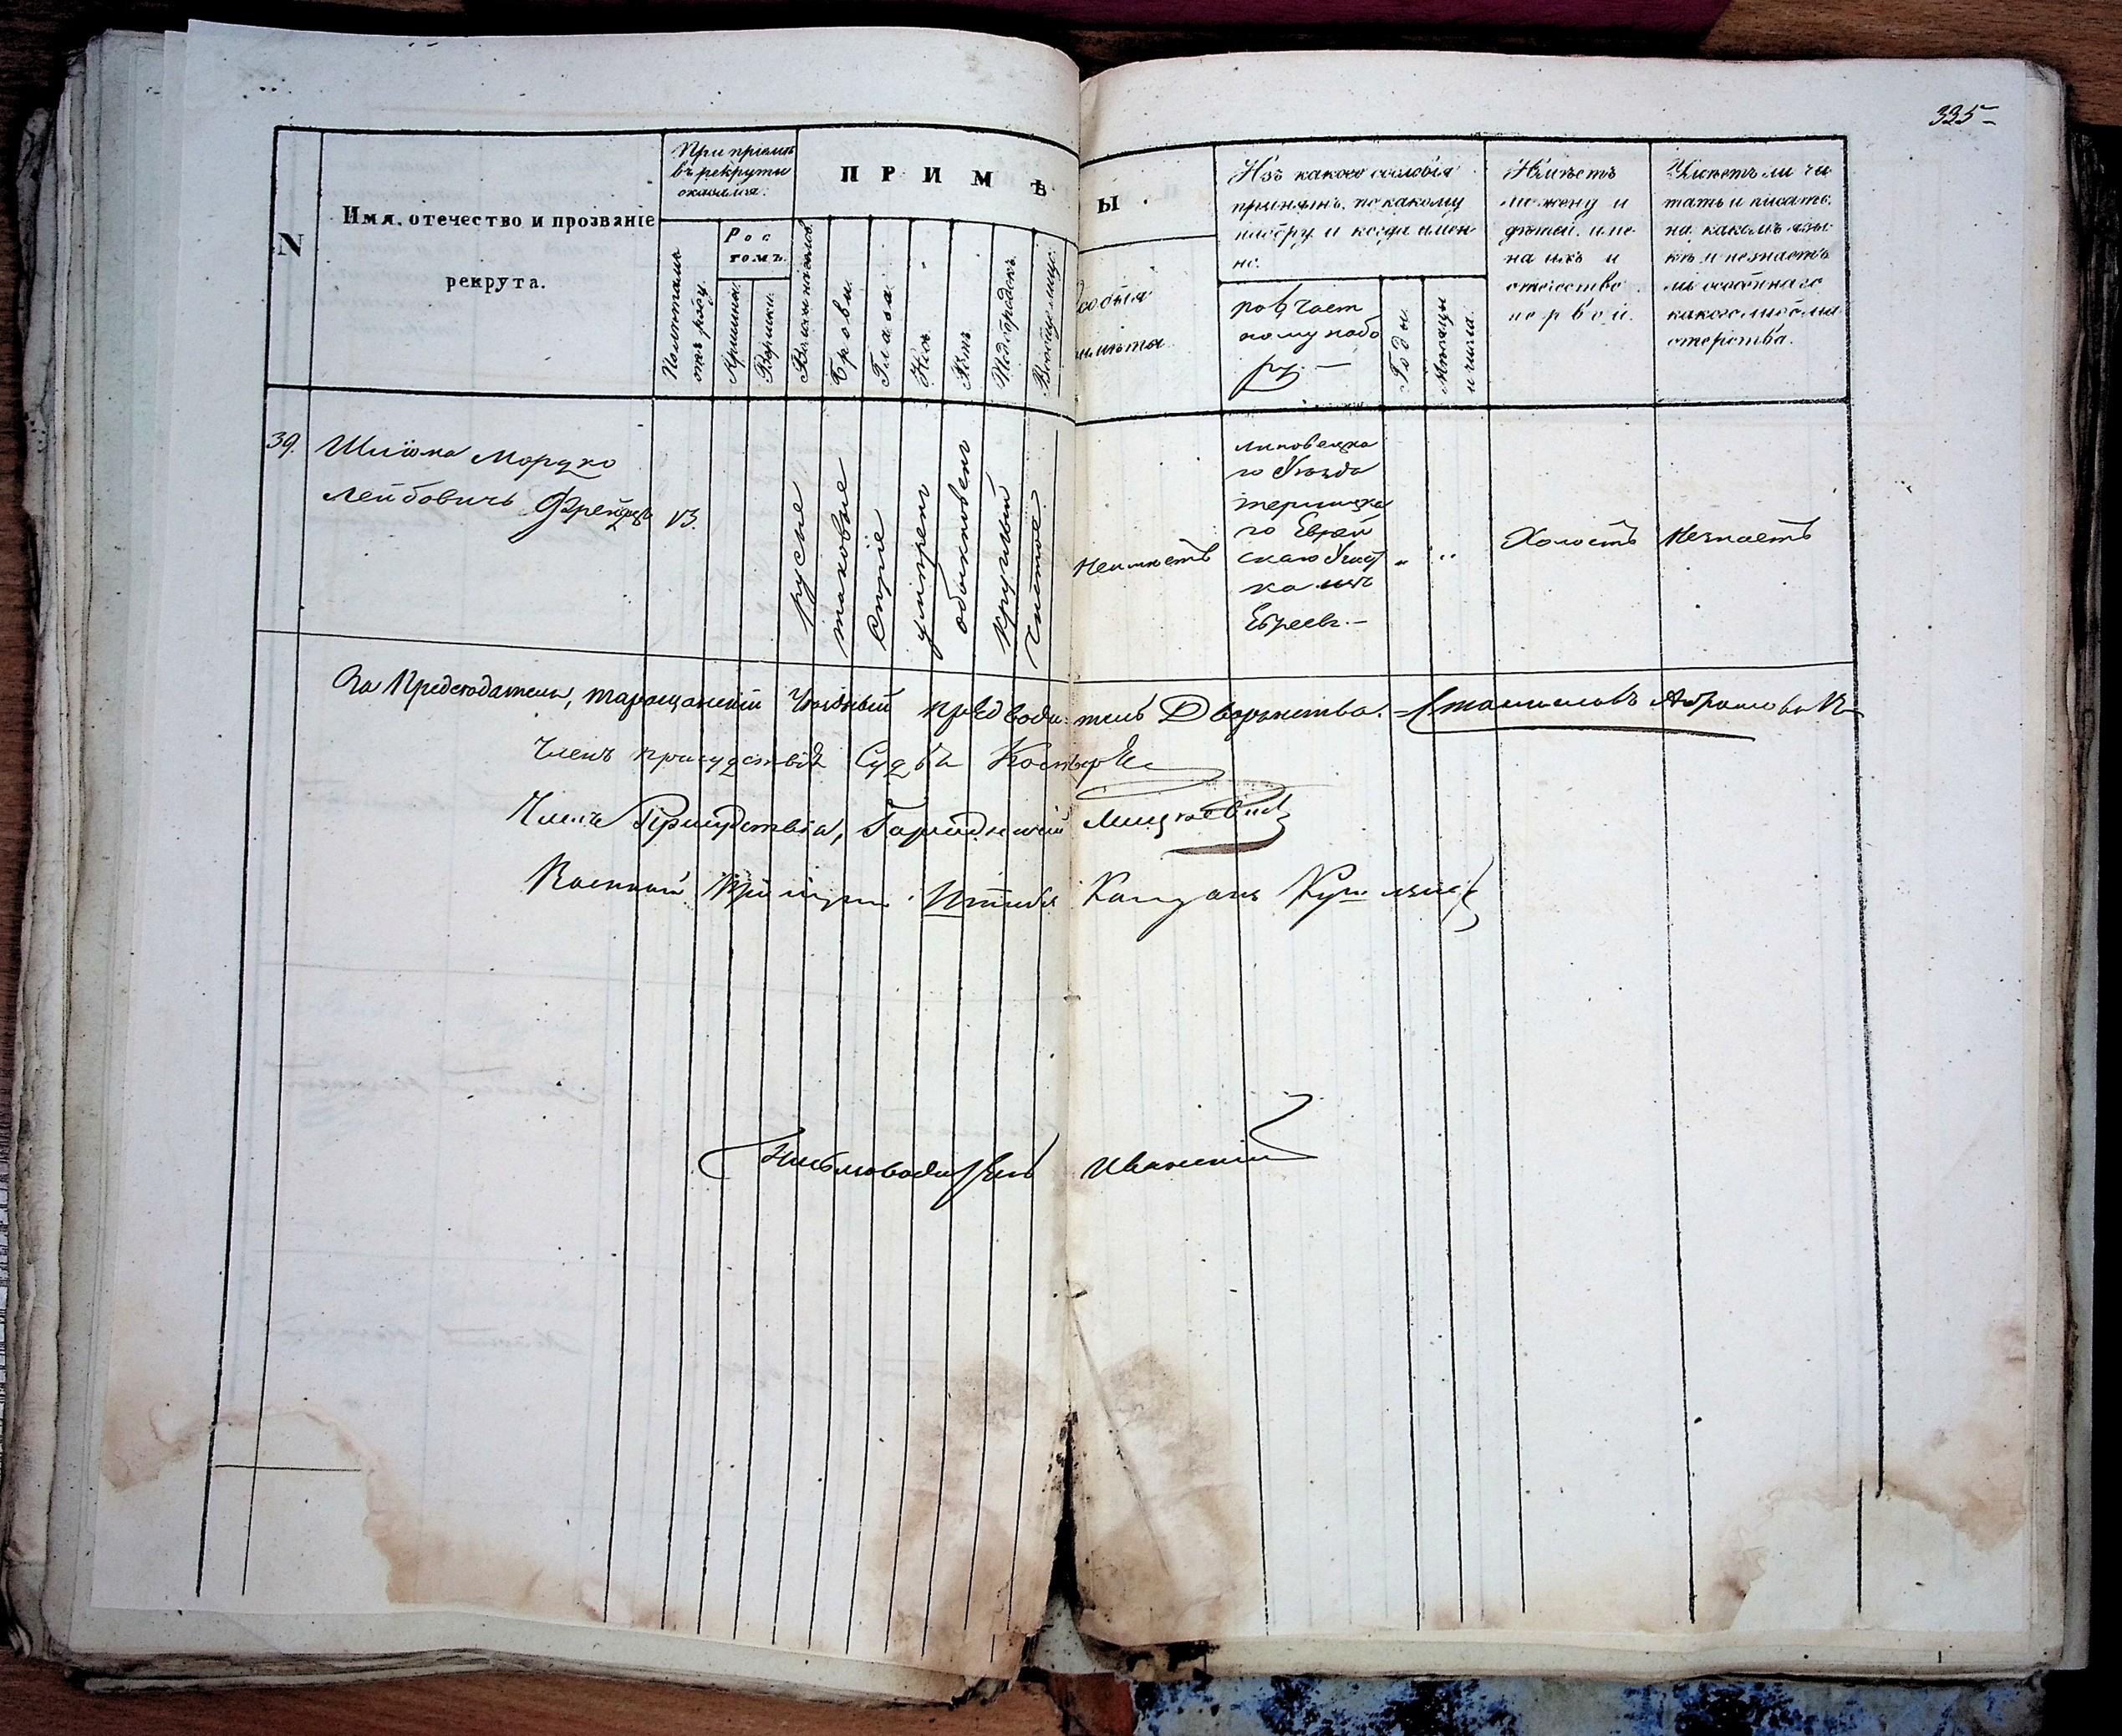 335
N
Имя, отечество и прозваніе
рекрута.
При пріемѣ
въ рекруты
оказался:
Полѣтамъ
отъ роду
Рос
томъ.
Аршины.
Вершки.
ПРИМѢ
Ы.
Бровы.
Глаза.
Носъ.
Ротъ.
Подбородокъ.
Вообще лице.
Особыя
примѣты.
Изъ какого сословія
принятъ, по какому
набору и когда имен
но.
по 9 част
ному набо
ру. —
Годы.
Мѣсяцы
и числа.
Имѣетъ
ли жену и
дѣтей, име
на ихъ и
отечество
первой.
Умѣетъ ли чи
тать и писать,
на какомъ язы
кѣ и незнаетъ
ли особеннаго
какого либо ма
стерства.
39.
Шлиома Мордко
Лейбовичь
13.
русые
таковые
Сѣрые
умѣрен
обыкновен
круглый
чистое
Неимѣетъ
липовецка
го Уѣзда
го Еврей
скаго Участ
ка изъ
Евреевъ. —
Холостъ
Незнаетъ
За Предсѣдателя, таращанскій Уѣздный предводитель Дворянства.
Членъ присудствія Судья
Членъ Присудствія, Городничій Мицкевичь
Военный Пріемщикъ Штабсъ Капитанъ
Письмоводитель Иванскій